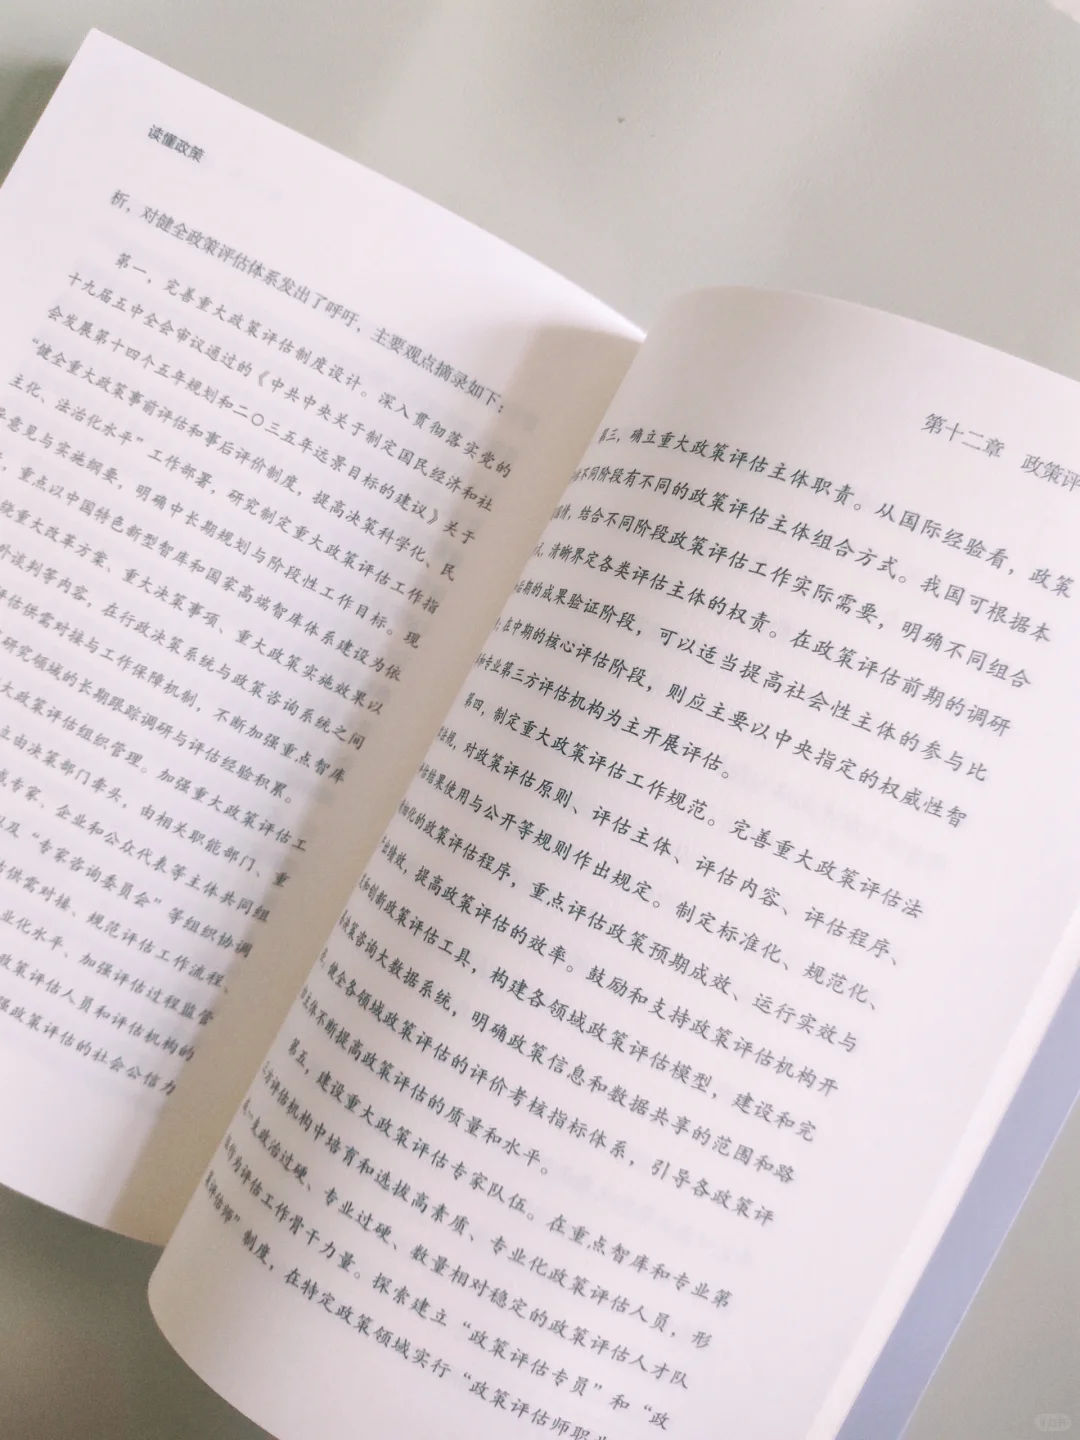 读懂政策
析，对健全政策评估体系发出了呼吁，主要观点摘录如下：
第一，完善重大政策评估制度设计。深入贯彻落实党的
十九届五中全会审议通过的《中共中央关于制定国民经济和社
会发展第十四个五年规划和二〇三五年远景目标的建议》关于
“健全重大政策事前评估和事后评价制度，提高决策科学化、民
主化、法治化水平”工作部署，研究制定重大政策评估工作指
意见与实施纲要，明确中长期规划与阶段性工作目标。现
，重点以中国特色新型智库和国家高端智库体系建设为依
绕重大改革方案、重大决策事项、重大政策实施效果以
外谈判等内容，在行政决策系统与政策咨询系统之间
评估供需对接与工作保障机制，不断加强重点智库
研究领域的长期跟踪调研与评估经验积累。
大政策评估组织管理。加强重大政策评估工
立由决策部门牵头，由相关职能部门、重
或专家、企业和公众代表等主体共同组
以及“专家咨询委员会”等组织协调
估供需对接、规范评估工作流程、
业化水平、加强评估过程监管
政策评估人员和评估机构的
强政策评估的社会公信力
第十二章 政策评
第三，确立重大政策评估主体职责。从国际经验看，政策
不同阶段有不同的政策评估主体组合方式。我国可根据本
国情，结合不同阶段政策评估工作实际需要，明确不同组合
式，清晰界定各类评估主体的权责。在政策评估前期的调研
后期的成果验证阶段，可以适当提高社会性主体的参与比
；在中期的核心评估阶段，则应主要以中央指定的权威性智
和专业第三方评估机构为主开展评估。
第四，制定重大政策评估工作规范。完善重大政策评估法
法规，对政策评估原则、评估主体、评估内容、评估程序、
估结果使用与公开等规则作出规定。制定标准化、规范化、
细化的政策评估程序，重点评估政策预期成效、运行实效与
出绩效，提高政策评估的效率。鼓励和支持政策评估机构开
和创新政策评估工具，构建各领域政策评估模型，建设和完
决策咨询大数据系统，明确政策信息和数据共享的范围和路
，健全各领域政策评估的评价考核指标体系，引导各政策评
主体不断提高政策评估的质量和水平。
第五，建设重大政策评估专家队伍。在重点智库和专业第
三方评估机构中培育和选拔高素质、专业化政策评估人员，形
一支政治过硬、专业过硬、数量相对稳定的政策评估人才队
作为评估工作骨干力量。探索建立“政策评估专员”和“政
策评估师”制度，在特定政策领域实行“政策评估师职业